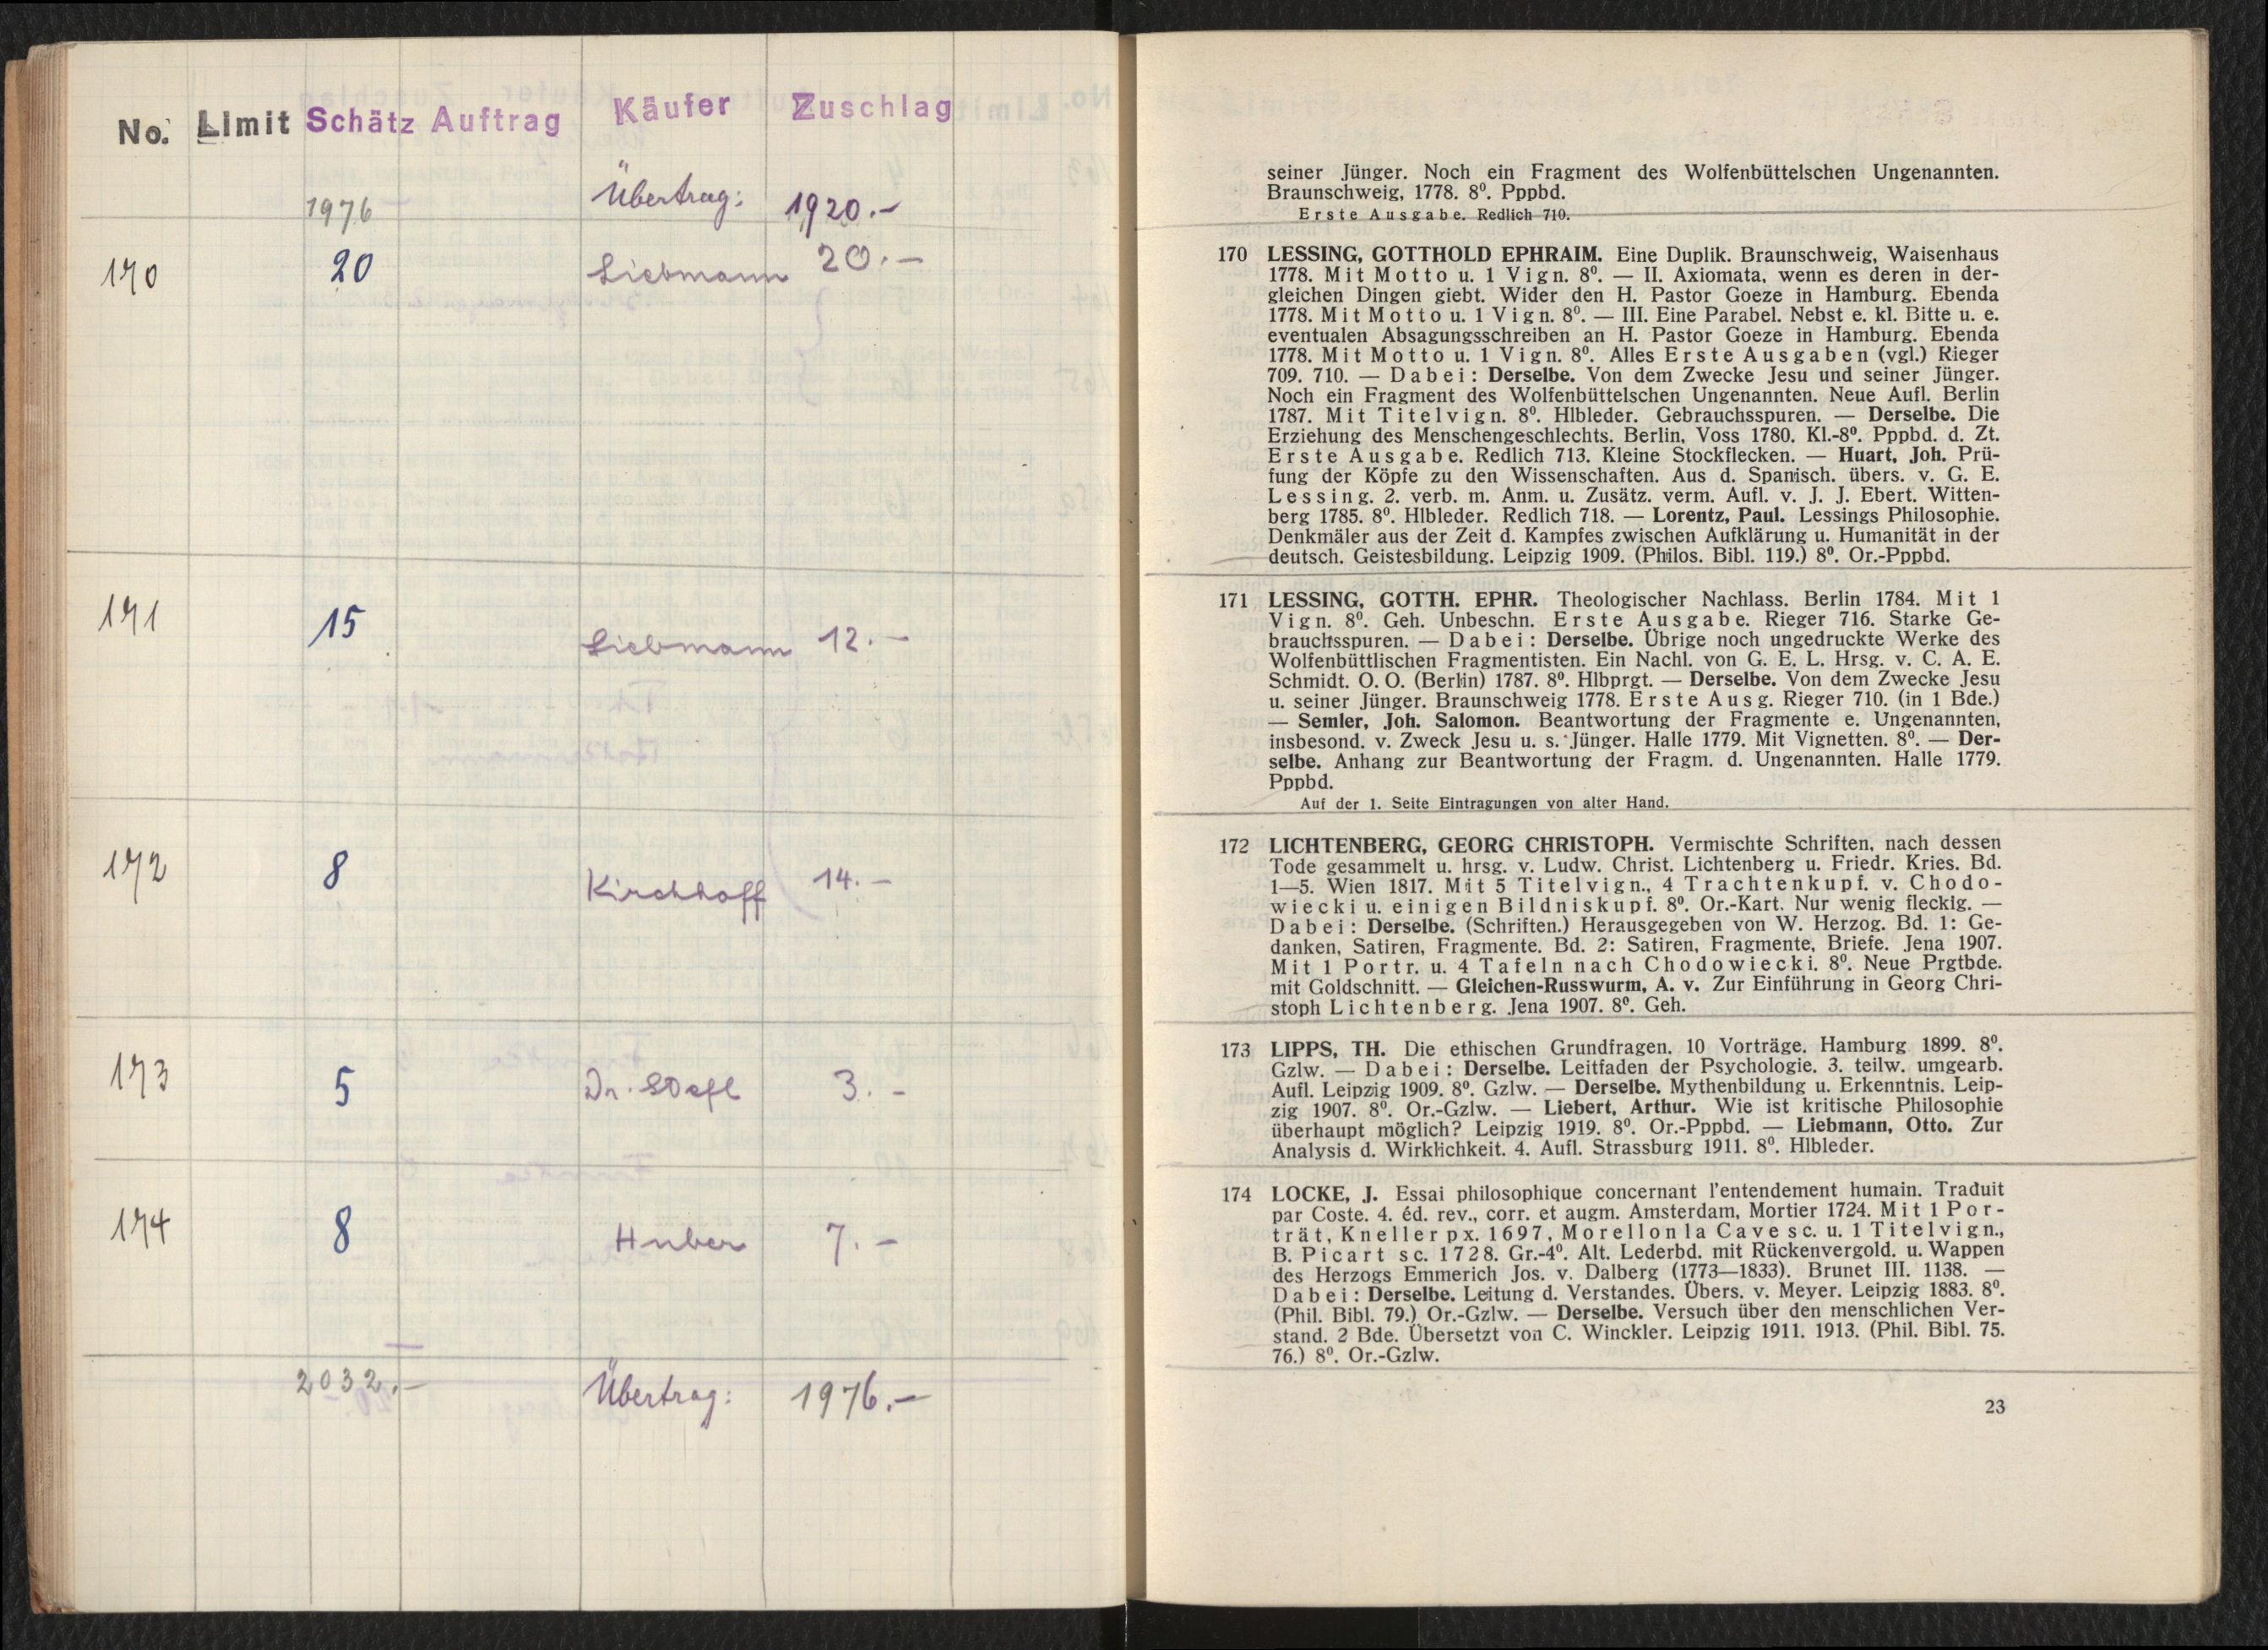 No. Limit Schätz Auftrag Käufer Zuschlag
1976 Übertrag: 1920.—
170 20 Liebmann 20.—
171 15 Liebmann 12.—
172 8 Kirchhoff 14.—
173 5 Dr. 3.-
174 8 Huber 7.-
2032.— Übertrag: 1976.—
seiner Jünger. Noch ein Fragment des Wolfenbüttelschen Ungenannten.
Braunschweig, 1778. 8⁰. Pppbd.
Erste Ausgabe. Redlich 710.
170 LESSING, GOTTHOLD EPHRAIM. Eine Duplik. Braunschweig, Waisenhaus
1778. Mit Motto u. 1 Vign. 8⁰. — II. Axiomata, wenn es deren in der-
gleichen Dingen giebt. Wider den H. Pastor Goeze in Hamburg. Ebenda
1778. Mit Motto u. 1 Vign. 8⁰. — III. Eine Parabel. Nebst e. kl. Bitte u. e.
eventualen Absagungsschreiben an H. Pastor Goeze in Hamburg. Ebenda
1778. Mit Motto u. 1 Vign. 8⁰. Alles Erste Ausgaben (vgl.) Rieger
709. 710. — Dabei: Derselbe. Von dem Zwecke Jesu und seiner Jünger.
Noch ein Fragment des Wolfenbüttelschen Ungenannten. Neue Aufl. Berlin
1787. Mit Titelvign. 8⁰. Hlbleder. Gebrauchsspuren. — Derselbe. Die
Erziehung des Menschengeschlechts. Berlin, Voss 1780. Kl.-8⁰. Pppbd. d. Zt.
Erste Ausgabe. Redlich 713. Kleine Stockflecken. — Huart, Joh. Prü-
fung der Köpfe zu den Wissenschaften. Aus d. Spanisch. übers. v. G. E.
Lessing. 2. verb. m. Anm. u. Zusätz. verm. Aufl. v. J. J. Ebert. Witten-
berg 1785. 8⁰. Hlbleder. Redlich 718. — Lorentz, Paul. Lessings Philosophie.
Denkmäler aus der Zeit d. Kampfes zwischen Aufklärung u. Humanität in der
deutsch. Geistesbildung. Leipzig 1909. (Philos. Bibl. 119.) 8⁰. Or.-Pppbd.
171 LESSING, GOTTH. EPHR. Theologischer Nachlass. Berlin 1784. Mit 1
Vign. 8⁰. Geh. Unbeschn. Erste Ausgabe. Rieger 716. Starke Ge-
brauchsspuren. — Dabei: Derselbe. Übrige noch ungedruckte Werke des
Wolfenbüttlischen Fragmentisten. Ein Nachl. von G. E. L. Hrsg. v. C. A. E.
Schmidt. O. O. (Berlin) 1787. 8⁰. Hlbprgt. — Derselbe. Von dem Zwecke Jesu
u. seiner Jünger. Braunschweig 1778. Erste Ausg. Rieger 710. (in 1 Bde.)
— Semler, Joh. Salomon. Beantwortung der Fragmente e. Ungenannten,
insbesond. v. Zweck Jesu u. s. Jünger. Halle 1779. Mit Vignetten. 8⁰. — Der-
selbe. Anhang zur Beantwortung der Fragm. d. Ungenannten. Halle 1779.
Pppbd.
Auf der 1. Seite Eintragungen von alter Hand.
172 LICHTENBERG, GEORG CHRISTOPH. Vermischte Schriften, nach dessen
Tode gesammelt u. hrsg. v. Ludw. Christ. Lichtenberg u. Friedr. Kries. Bd.
1—5. Wien 1817. Mit 5 Titelvign., 4 Trachtenkupf. v. Chodo-
wiecki u. einigen Bildniskupf. 8⁰. Or.-Kart. Nur wenig fleckig. —
Dabei: Derselbe. (Schriften.) Herausgegeben von W. Herzog. Bd. 1: Ge-
danken, Satiren, Fragmente. Bd. 2: Satiren, Fragmente, Briefe. Jena 1907.
Mit 1 Portr. u. 4 Tafeln nach Chodowiecki. 8⁰. Neue Prgtbde.
mit Goldschnitt. — Gleichen-Russwurm, A. v. Zur Einführung in Georg Chri-
stoph Lichtenberg. Jena 1907. 8⁰. Geh.
173 LIPPS, TH. Die ethischen Grundfragen. 10 Vorträge. Hamburg 1899. 8⁰.
Gzlw. — Dabei: Derselbe. Leitfaden der Psychologie. 3. teilw. umgearb.
Aufl. Leipzig 1909. 8⁰. Gzlw. — Derselbe. Mythenbildung u. Erkenntnis. Leip-
zig 1907. 8⁰. Or.-Gzlw. — Liebert, Arthur. Wie ist kritische Philosophie
überhaupt möglich? Leipzig 1919. 8⁰. Or.-Pppbd. — Liebmann, Otto. Zur
Analysis d. Wirklichkeit. 4. Aufl. Strassburg 1911. 8⁰. Hlbleder.
174 LOCKE, J. Essai philosophique concernant l'entendement humain. Traduit
par Coste. 4. éd. rev., corr. et augm. Amsterdam, Mortier 1724. Mit 1 Por-
trät, Kneller px. 1697, Morellon la Cave sc. u. 1 Titelvign.,
B. Picart sc. 1728. Gr.-4⁰. Alt. Lederbd. mit Rückenvergold. u. Wappen
des Herzogs Emmerich Jos. v. Dalberg (1773—1833). Brunet III. 1138. —
Dabei: Derselbe. Leitung d. Verstandes. Übers. v. Meyer. Leipzig 1883. 8⁰.
(Phil. Bibl. 79.) Or.-Gzlw. — Derselbe. Versuch über den menschlichen Ver-
stand. 2 Bde. Übersetzt von C. Winckler. Leipzig 1911. 1913. (Phil. Bibl. 75.
76.) 8⁰. Or.-Gzlw.
23